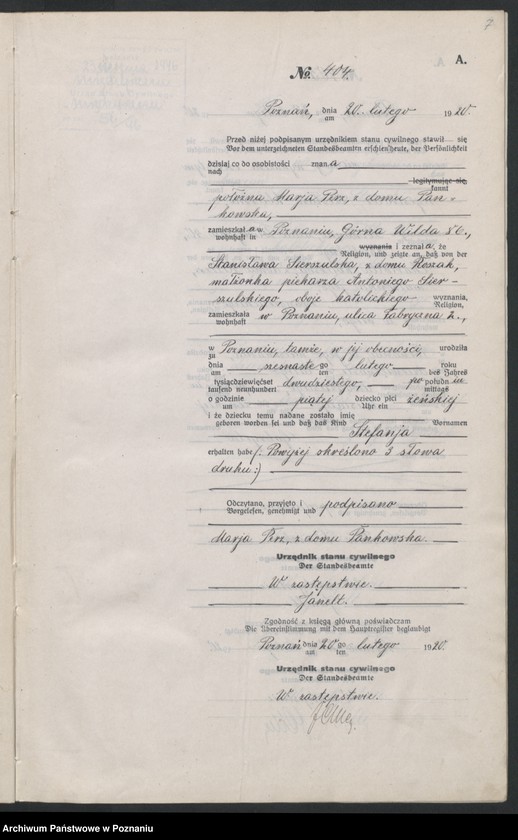 7
A.
№ 404.
Poznań, dnia 20. lutego 1920.
am
Przed niżej podpisanym urzędnikiem stanu cywilnego stawił się
Vor dem unterzeichneten Standesbeamten erschien heute, der Persönlichkeit
dzisiaj co do osobistości znana
nach
legitymując się,
kannt
położna Marja Perz, z domu Pan-
kowska,
zamieszkała w Poznaniu, Górna Wilda 86.,
wohnhaft in
wyznania i zeznała, że
Religion, und zeigte an, daß von der
Stanisława Sierszulska, z domu Koszak,
małżonka piekarza Antoniego Sier-
szulskiego, oboje katolickiego wyznania,
Religion,
zamieszkała w Poznaniu, ulica Fabryczna 2.,
wohnhaft
w Poznaniu, tamże, w jej obecności, urodziła
zu
dnia szesnastego lutego roku
am ten des Jahres
tysiącdziewięćset dwudziestego, po południu
tausend neunhundert mittags
o godzinie piątej dziecko płci żeńskiej
um Uhr ein
i że dziecku temu nadane zostało imię
geboren worden sei und daß das Kind Vornamen
Stefanja
erhalten habe /: Powyżej określono 3 słowa
druku :/
Odczytano, przyjęto i podpisano
Vorgelesen, genehmigt und
Marja Perz, z domu Pankowska.
Urzędnik stanu cywilnego
Der Standesbeamte
W zastępstwie.
Janelt.
Zgodność z księgą główną poświadczam
Die Übereinstimmung mit dem Hauptregister beglaubigt
Poznań dnia 20go lutego 1920.
am ten
Urzędnik stanu cywilnego
Der Standesbeamte
W zastępstwie.
Archiwum Państwowe w Poznaniu